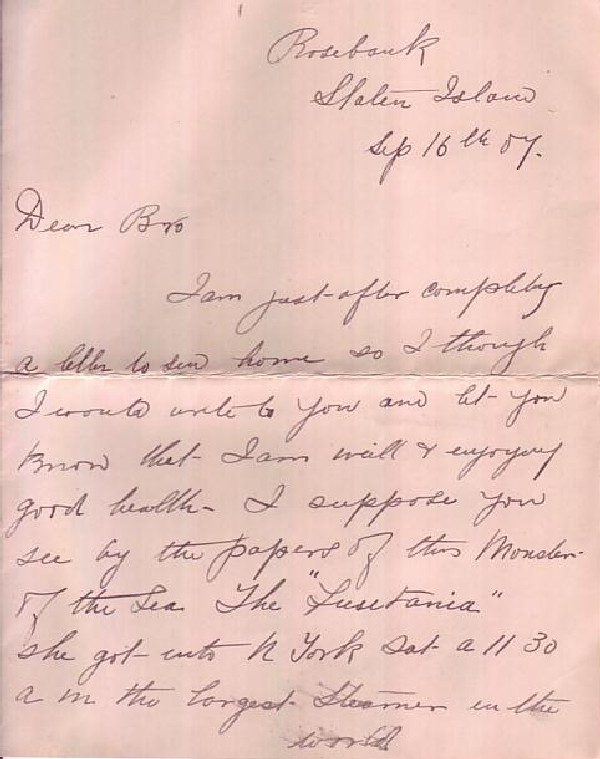 Rosebank
Staten Island
Sep 16th 07.
Dear Bro
I am just after completing
a letter to sen home so I though
I would write to you and let you
know that I am well & enjoying
good health - I suppose you
see by the papers of this Monster
of the Sea The "Lusetania"
she got into N York Sat a 11 30
a m the largest Steamer in the
world